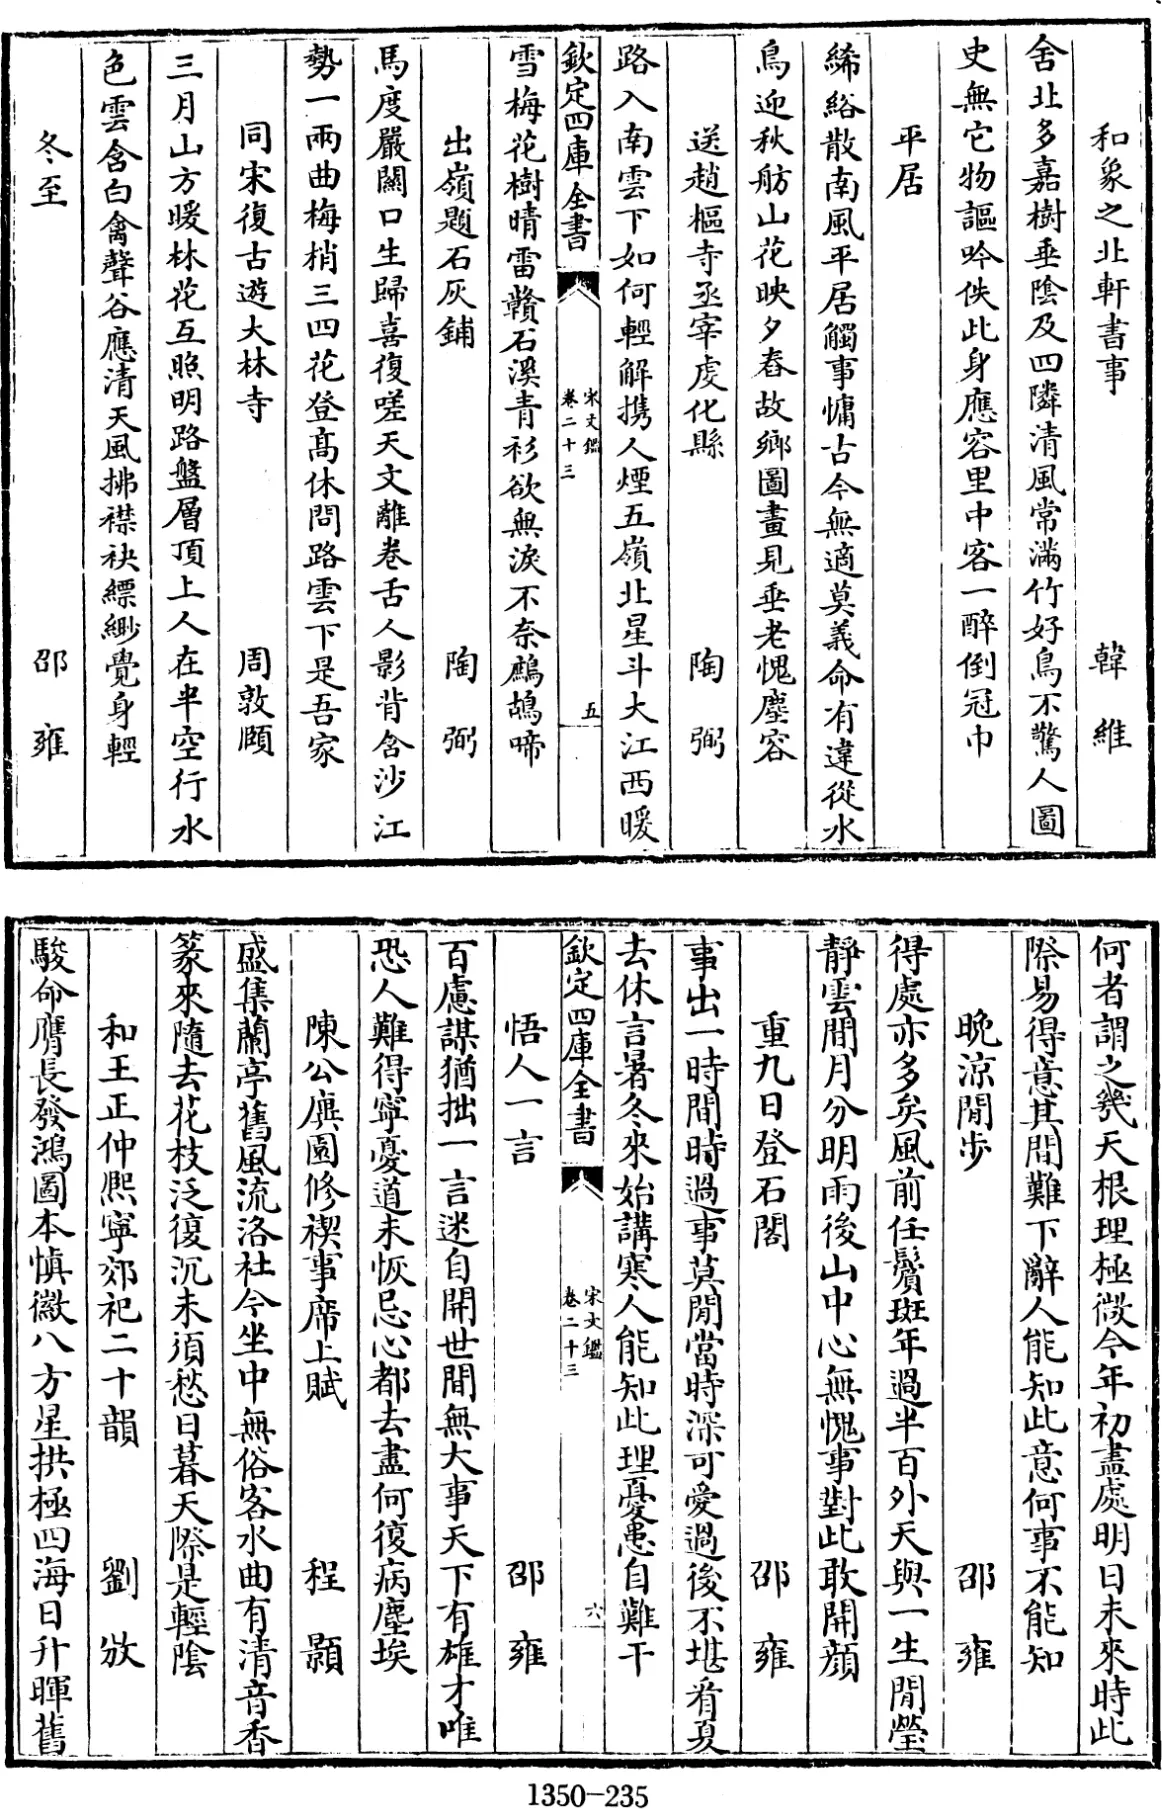 和象之北軒書事 韓維
舍北多嘉樹垂陰及四隣清風常滿竹好鳥不驚人圖
史無它物謳吟佚此身應容里中客一醉倒冠巾
平居
絺綌散南風平居觸事慵古今無適莫義命有違從水
鳥迎秋舫山花映夕舂故鄉圖畫見垂老愧塵容
送趙樞寺丞宰虔化縣 陶弼
路入南雲下如何輕解攜人煙五嶺北星斗大江西暖
欽定四庫全書 宋文鑑 卷二十三 五
雪梅花樹晴雷贛石溪青衫欲無淚不奈鷓鴣啼
出嶺題石灰鋪 陶弼
馬度嚴關口生歸喜復嗟天文離卷舌人影背含沙江
勢一兩曲梅梢三四花登髙休問路雲下是吾家
同宋復古遊大林寺 周敦頤
三月山方暖林花互照明路盤層頂上人在半空行水
色雲含白禽聲谷應清天風拂襟袂縹緲覺身輕
冬至 邵雍
何者謂之幾天根理極微今年初盡處明日未來時此
際易得意其間難下辭人能知此意何事不能知
晚涼閒步 邵雍
得處亦多矣風前任鬢斑年過半百外天與一生閒瑩
靜雲間月分明雨後山中心無愧事對此敢開顔
重九日登石閣 邵雍
事出一時間時過事莫閒當時深可愛過後不堪看夏
去休言暑冬來始講寒人能知此理憂患自難干
欽定四庫全書 宋文鑑 卷二十三 六
悟人一言 邵雍
百慮謀猶拙一言迷自開世間無大事天下有雄才唯
恐人難得寧憂道未恢忌心都去盡何復病塵埃
陳公廙園修禊事席上賦 程顥
盛集蘭亭舊風流洛社今坐中無俗客水曲有清音香
篆來隨去花枝泛復沉未須愁日暮天際是輕陰
和王正仲熙寧郊祀二十韻 劉攽
駿命膺長發鴻圖本慎徽八方星拱極四海日升暉舊
1350-235